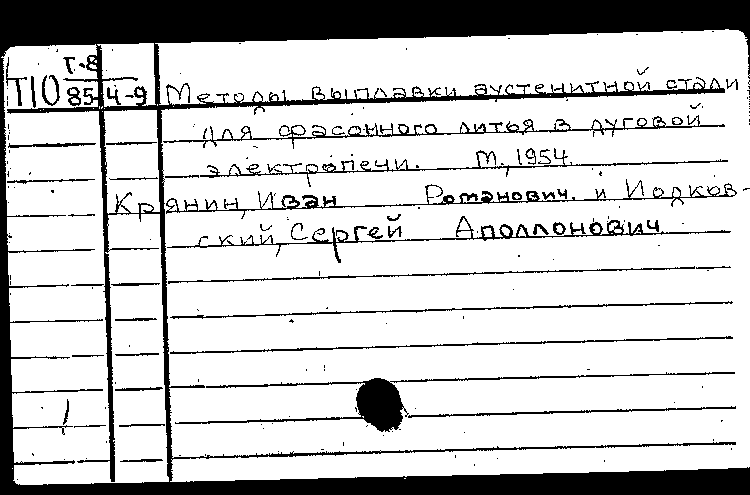 Г-8
Т10 85-4-9 Методы выплавки аустенитной стали
для фасонного литья в дуговой
электропечи. М., 1954
Крянин, Иван Романович. и Иодков-
ский, Сергей Аполлонович